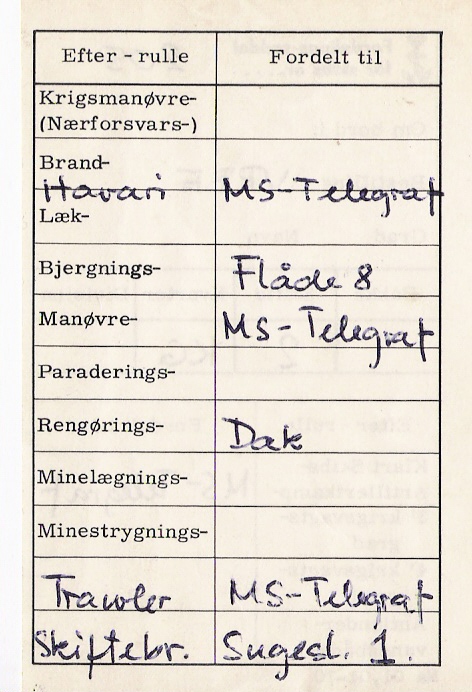 Efter - rulle Fordelt til
Krigsmanøvre-
(Nærforsvars-)
Brand-
Havari MS-Telegraf
Læk-
Bjergnings- Flåde 8
Manøvre- MS-Telegraf
Paraderings-
Rengørings- Dæk
Minelægnings-
Minestrygnings-
Trawler MS-Telegraf
Skiftebr. Sugesl. 1.